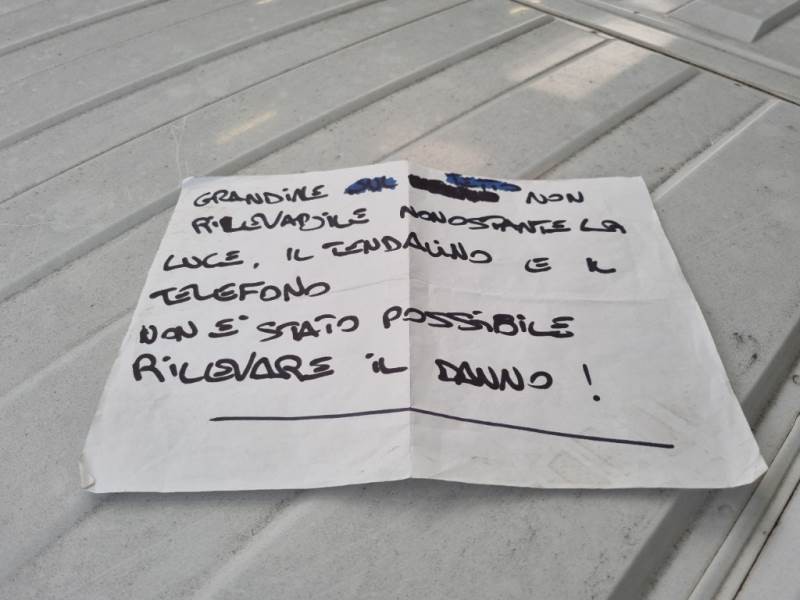 GRANDINE NON
RILEVABILE NONOSTANTE LA
LUCE, IL TENDALINO E IL
TELEFONO
NON E' STATO POSSIBILE
RILEVARE IL DANNO!